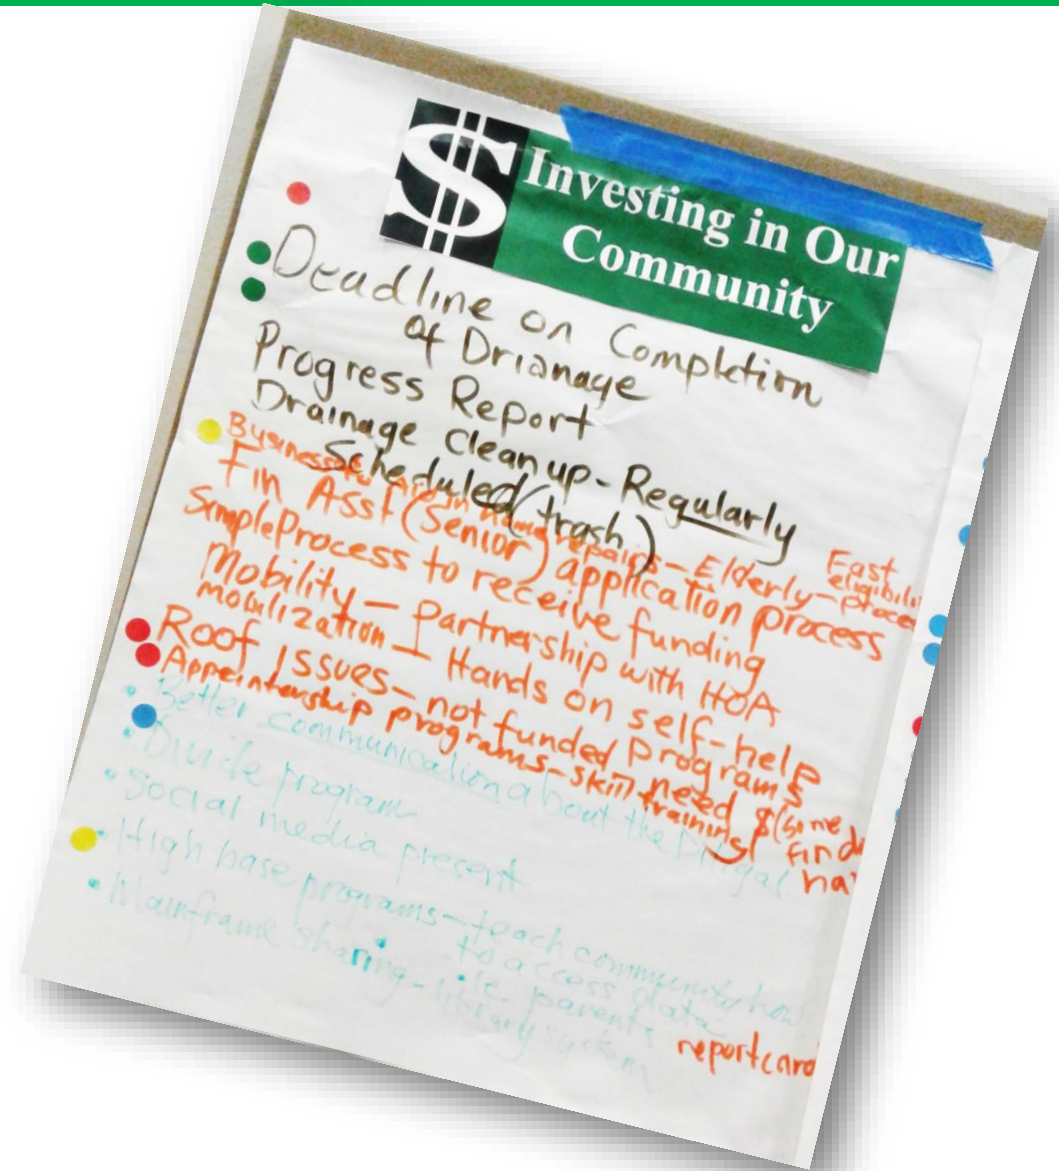 $
Investing in Our
Community
Deadline on Completion
of Drianage
Progress Report
Drainage Cleanup - Regularly
Scheduled (trash)
home repairs - Elderly - Fast
Fin Asst (Senior) application process
Simple Process to receive funding
Mobility - Partnership with HOA
mobilization - Hands on self-help
Roof Issues - not funded programs
programs - skill training need $ (some
Better communication about the
program
• Social media present
• High base programs - teach community how
to access data
i.e. parents reportcard
• Mainframe sharing - library system